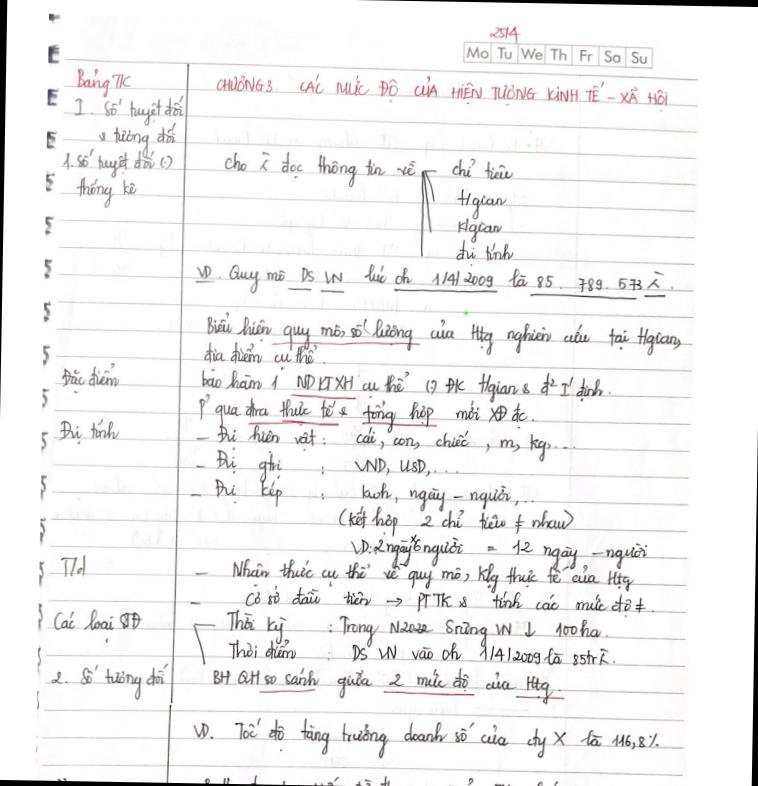 25/4
Mo Tu We Th Fr Sa Su
Bảng TK
CHƯƠNG 3. CÁC MỨC ĐỘ CỦA HIỆN TƯỢNG KINH TẾ - XÃ HỘI
I. Số tuyệt đối
& tương đối
1. Số tuyệt đối (-)
thống kê
cho ng đọc thông tin về chỉ tiêu
t/gian
k/gian
đvị tính
VD. Quy mô DS VN lúc 0h 1/4/2009 là 85. 789. 573 ng.
Biểu hiện quy mô, số lượng của Htg nghiên cứu tại t/gian,
địa điểm cụ thể.
Đặc điểm
bao hàm 1 ND KTXH cụ thể (-) ĐK t/gian & định.
P' qua đtra thực tế & tổng hợp mới XĐ đc.
Đvị tính
- Đvị hiện vật: cái, con, chiếc, m, kg,...
- Đvị gtrị : VND, USD,...
- Đvị kép : kwh, ngày - người,..
(kết hợp 2 chỉ tiêu ≠ nhau)
VD: 2 ngày * 6 người = 12 ngày - người
T/d
- Nhận thức cụ thể về quy mô, klg thực tế của Htg
- Cơ sở đầu tiên → PTTK & tính các mức độ ≠.
Các loại STĐ
Thời kỳ : Trong N2022 Srừng VN ↓ 100ha.
Thời điểm : DS VN vào 0h 1/4/2009 là 85tr ng.
2. Số tương đối
BH QH so sánh giữa 2 mức độ của Htg.
VD. Tốc độ tăng trưởng doanh số của cty X là 116,8%